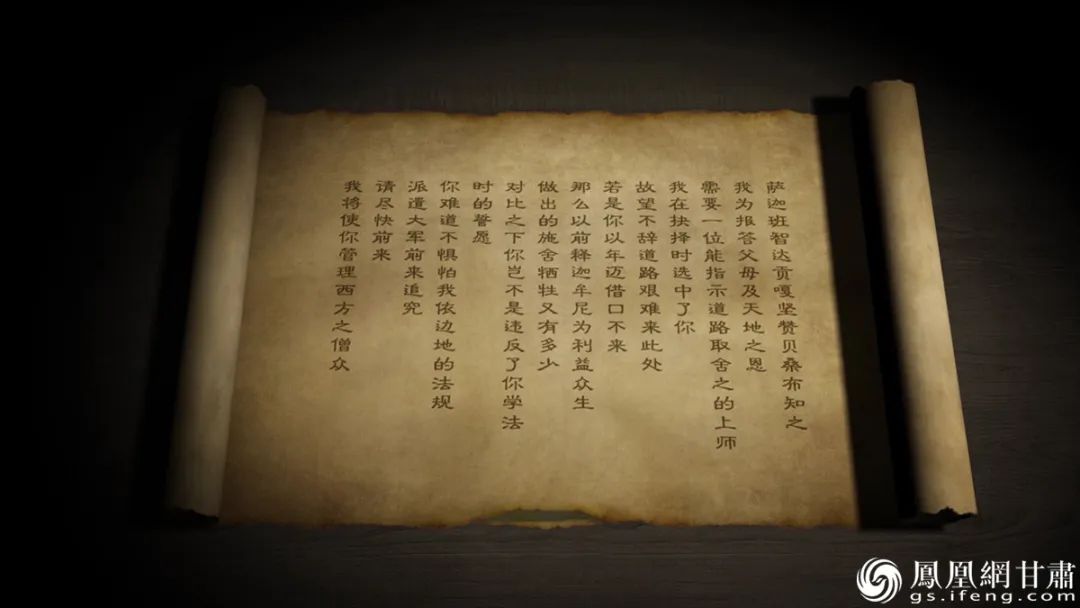 萨迦班智达贡嘎坚赞贝桑布知之
我为报答父母及天地之恩
需要一位能指示道路取舍之的上师
我在抉择时选中了你
故望不辞道路艰难来此处
若是你以年迈借口不来
那么以前释迦牟尼为利益众生
做出的施舍牺牲又有多少
对比之下你岂不是违反了你学法
时的誓愿
你难道不惧怕我依边地的法规
派遣大军前来追究
请尽快前来
我将使你管理西方之僧众
鳳凰網甘肅
gs.ifeng.com